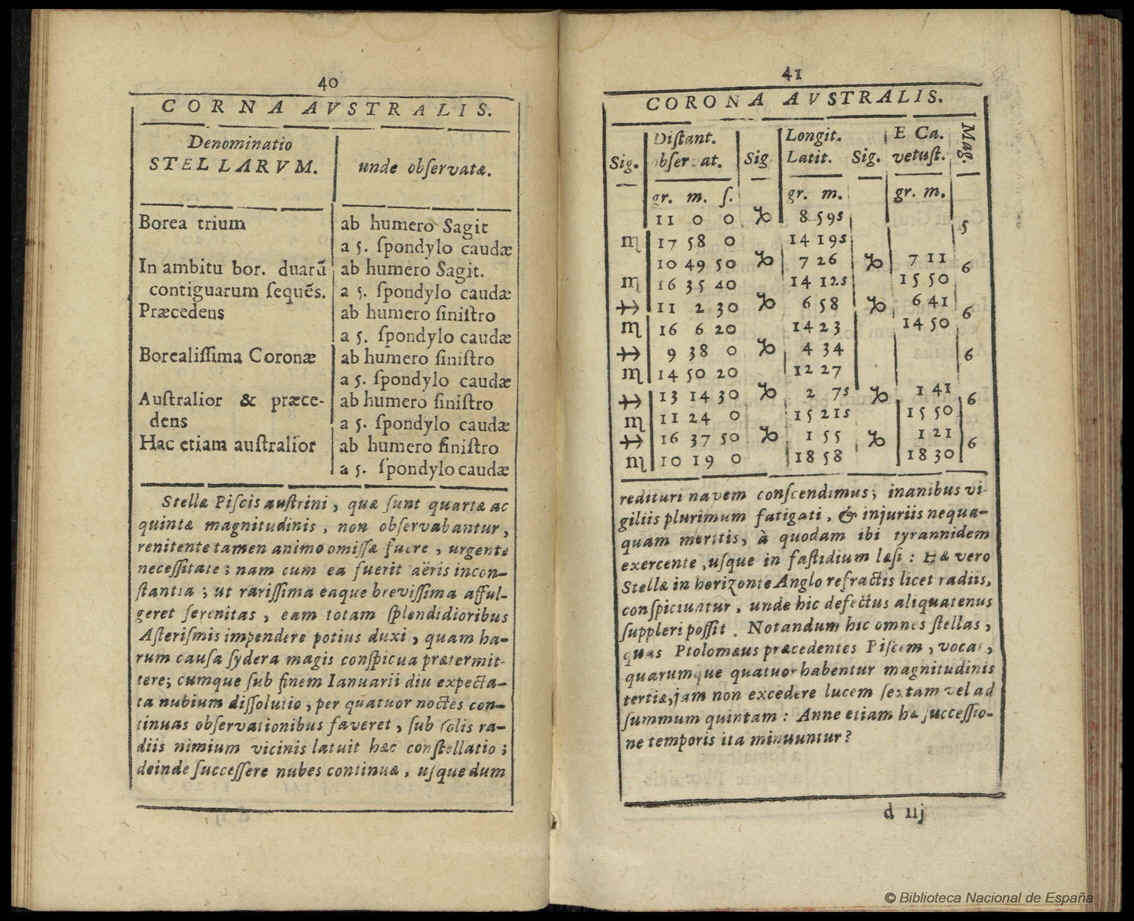 40
CORNA AVSTRALIS.
Denominatio
STELLARVM.
unde observatæ.
Borea trium
ab humero Sagit
a 5. spondylo caudæ
In ambitu bor. duarũ
ab humero Sagit.
contiguarum sequẽs.
a 5. spondylo caudæ
Præcedens
ab humero sinistro
a 5. spondylo caudæ
Borealissima Coronæ
ab humero sinistro
a 5. spondylo caudæ
Australior & præce-
ab humero sinistro
dens
a 5. spondylo caudæ
Hac etiam australior
ab humero sinistro
a 5. spondylo caudæ
Stellæ Piscis austrini, quæ sunt quartæ ac
quintæ magnitudinis, non observabantur,
renitente tamen animo omissæ fuere, urgente
necessitate; nam cum ea fuerit aëris incon-
stantia; ut rarissima eaque brevissima afful-
geret serenitas, eam totam splendidioribus
Asterismis impendere potius duxi, quam ha-
rum causa sydera magis conspicua prætermit-
tere; cumque sub finem Ianuarii diu expecta-
ta nubium dissolutio, per quatuor noctes con-
tinuas observationibus faveret, sub solis ra-
diis nimium vicinis latuit hæc constellatio;
deinde successere nubes continuæ, usque dum
41
CORONA AVSTRALIS.
Sig.
Distant.
observat.
Sig
Longit.
Latit.
Sig.
E Ca.
vetust.
Mag.
gr. m. s.
gr. m.
gr. m.
11 0 0 ♑ 8 59s
5
♏ 17 58 0 14 19s
10 49 50 ♑ 7 26 ♑ 7 11 6
♏ 16 35 40 14 12s 15 50
♐ 11 2 30 ♑ 6 58 ♑ 6 41 6
♏ 16 6 20 14 23 14 50
♐ 9 38 0 ♑ 4 34 6
♏ 14 50 20 12 27
♐ 13 14 30 ♑ 2 7s ♑ 1 41 6
♏ 11 24 0 15 21s 15 50
♐ 16 37 50 ♑ 1 55 ♑ 1 21 6
♏ 10 19 0 18 58 18 30
redituri navem conscendimus; inanibus vi-
giliis plurimum fatigati, & injuriis nequa-
quam meritis, à quodam ibi tyrannidem
exercente, usque in fastidium læsi: Eæ vero
Stellæ in horizonte Anglo refractis licet radiis,
conspiciuntur, unde hic defectus aliquatenus
suppleri possit. Notandum hic omnes stellas,
quas Ptolomæus præcedentes Piscem, vocat,
quarumque quatuor habentur magnitudinis
tertiæ, jam non excedere lucem sextam vel ad
summum quintam: Anne etiam hæ successio-
ne temporis ita minuuntur?
d iij
© Biblioteca Nacional de España